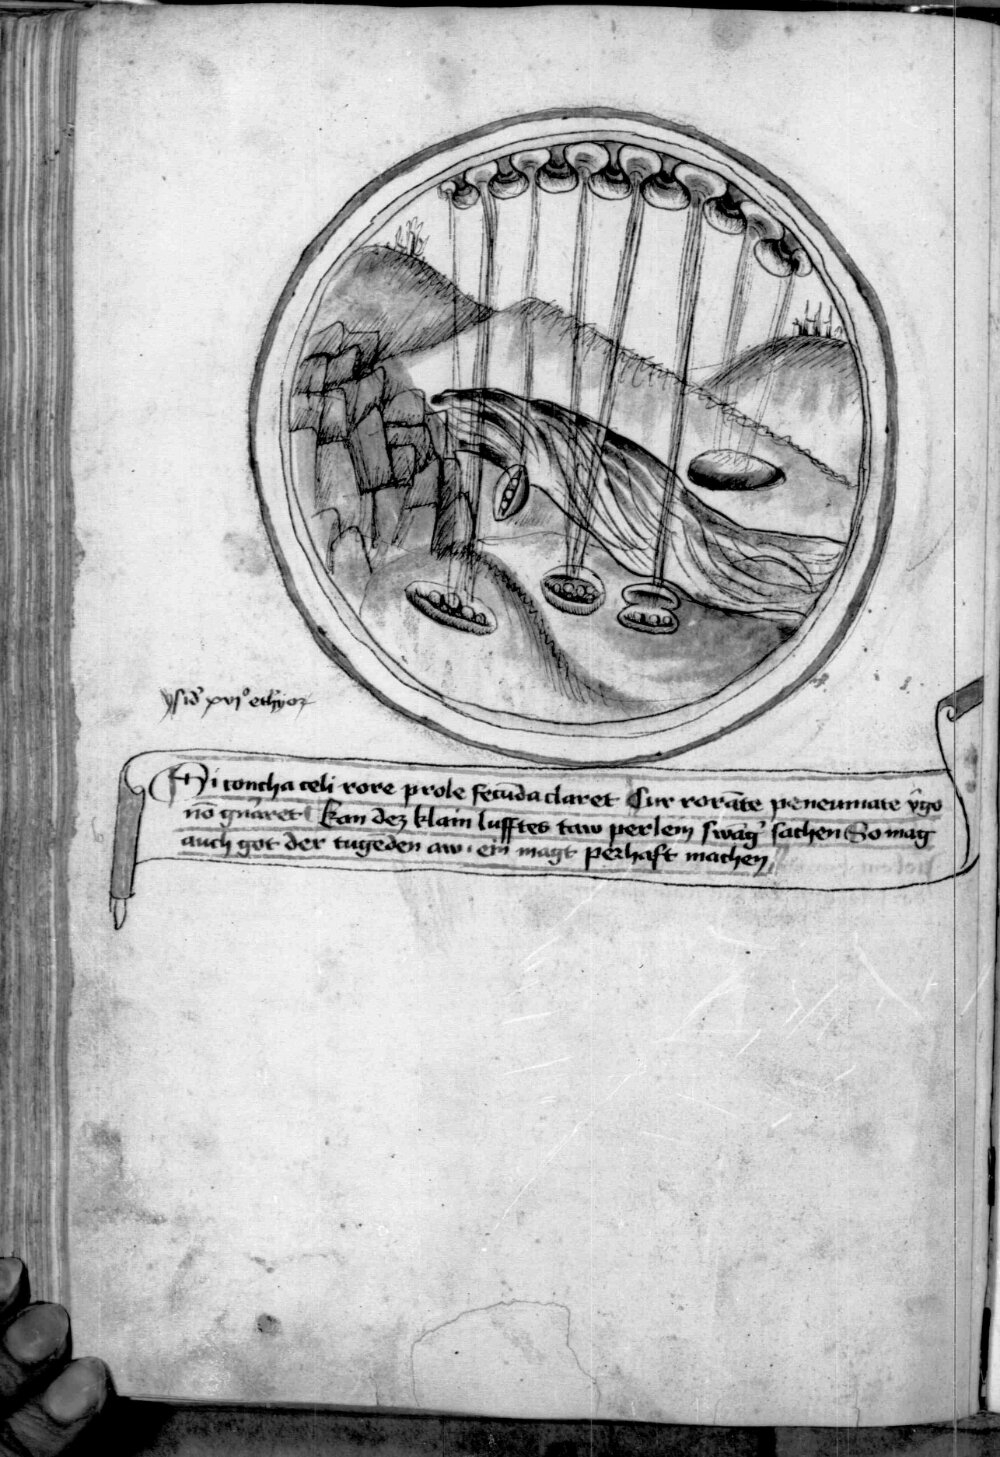 ysid᷒ xvi° ethyoꝝ
Si concha celi rore prole fecūda claret Cur rorāte peneumate v͛go
nō gn͛aret Kan dez klain lufftes taw perlein swāg͛ sachen So mag
auch got der tugēden aw · ein magt perhaft machen